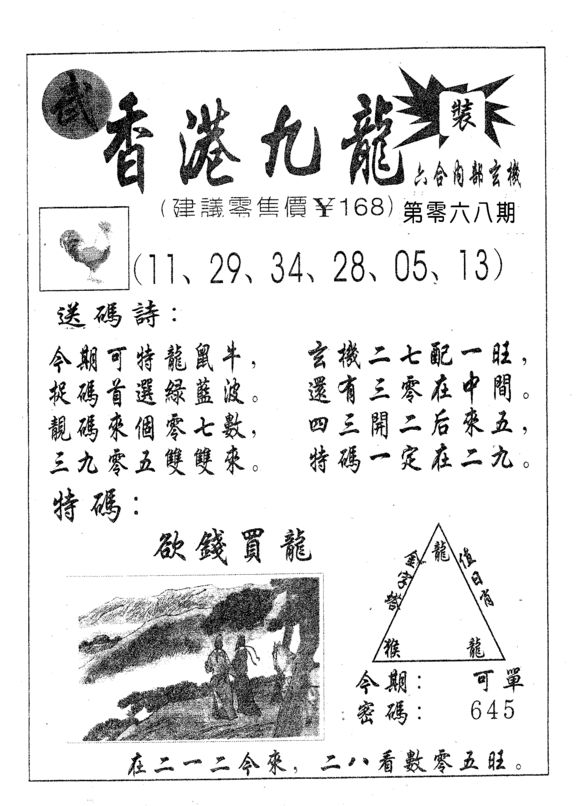 武
香港九龍
裝
六合內部玄機
(建議零售價¥168)
第零六八期
(11、29、34、28、05、13)
送碼詩:
今期可特龍鼠牛,
玄機二七配一旺,
捉碼首選綠藍波。
還有三零在中間。
靚碼來個零七數,
四三開二后來五,
三九零五雙雙來。
特碼一定在二九。
特碼:
欲錢買龍
龍
金字塔
值日肖
猴
龍
今期: 可單
密碼: 645
在二一二今來, 二八看數零五旺。